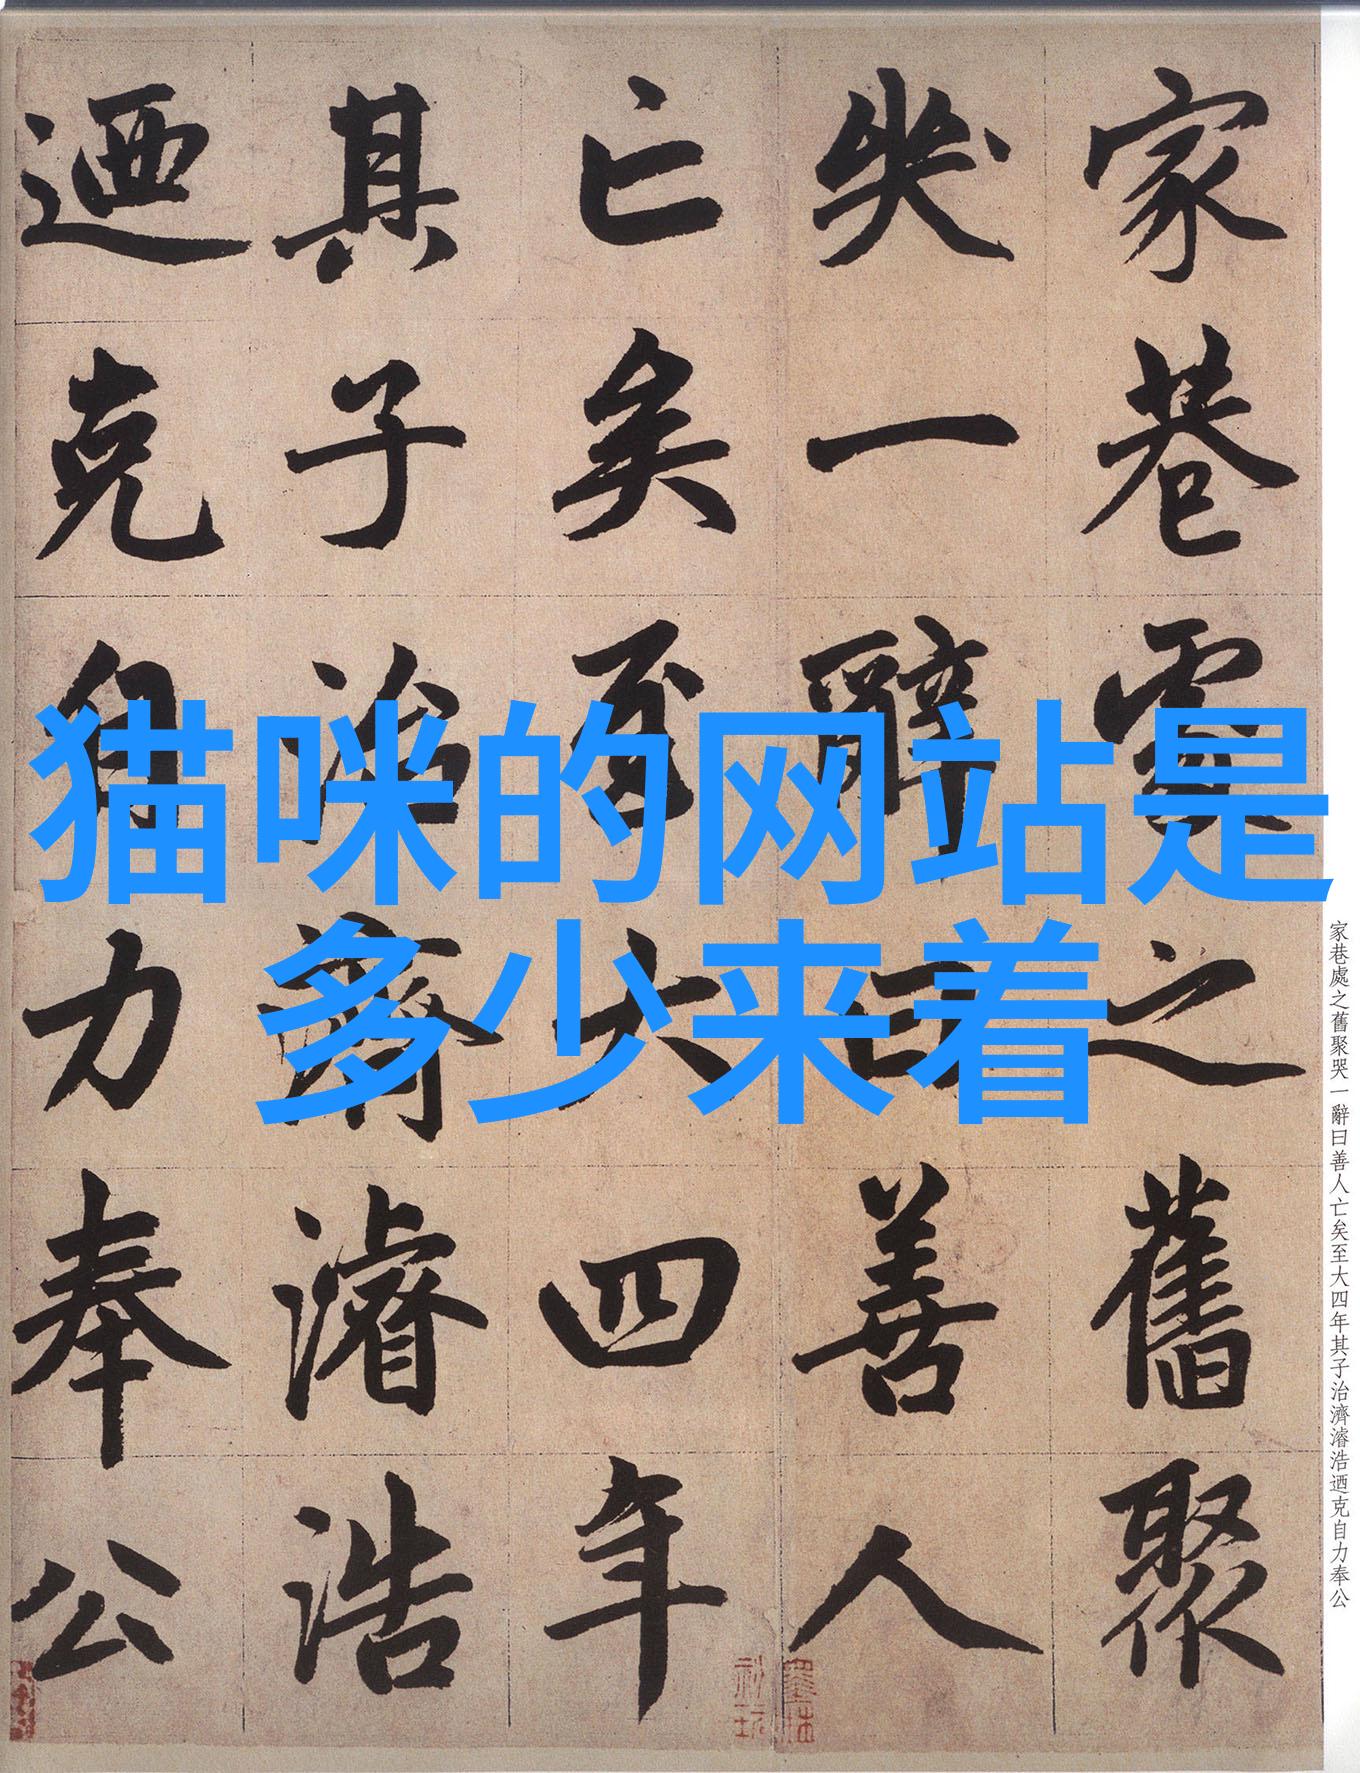 家巷處之舊聚
哭一辭曰善人
亡矣至大四年
其子治濟濬浩
迺克自力奉公
猫咪的网站是
多少来着
家巷處之舊聚哭一辭曰善人亡矣至大四年其子治濟濬浩迺克自力奉公